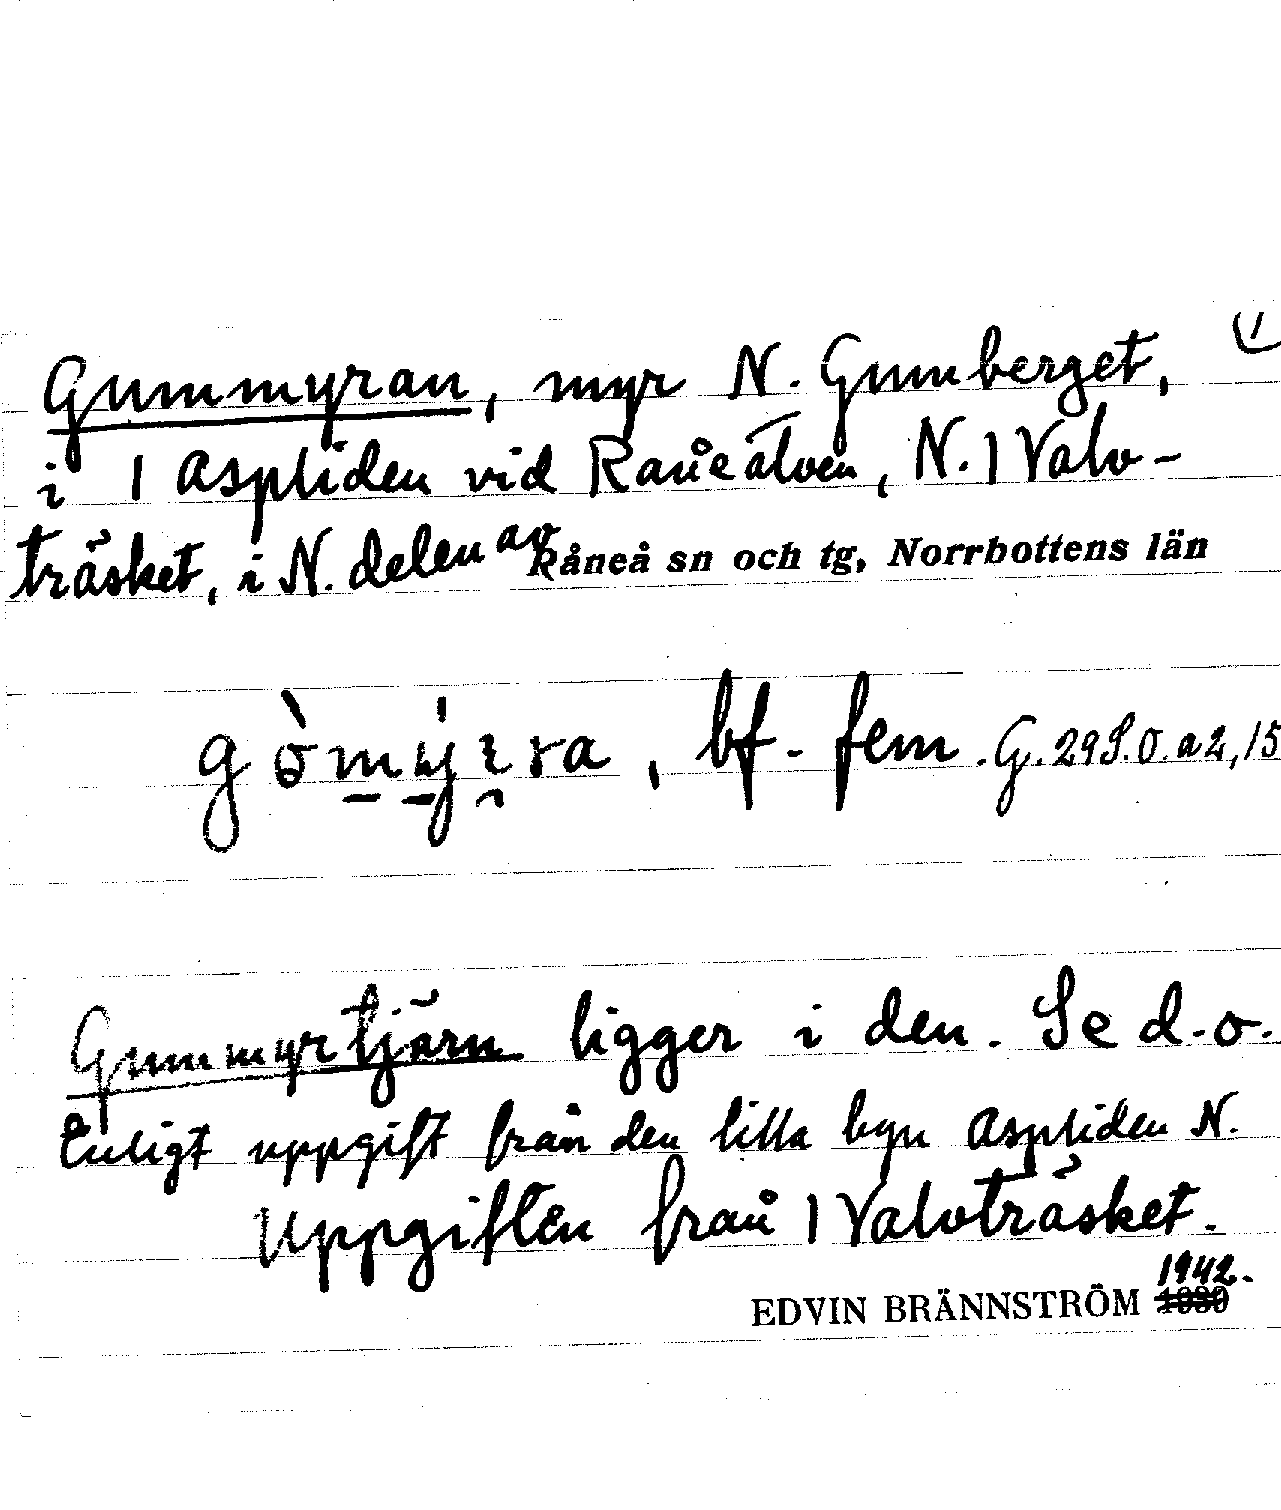 Gummyran, myr N. Gumberget,
i 1 Aspliden vid Råneälven, N. 1 Valv-
träsket, i N. delen av Råneå sn och tg, Norrbottens län
bf. fem. G. 29 S.O. a 2, 15
Gummyrtjärn ligger i den. Se d.o.
Enligt uppgift från den lilla byn Aspliden N.
Uppgiften från 1 Valvträsket.
1942.
EDVIN BRÄNNSTRÖM 1930